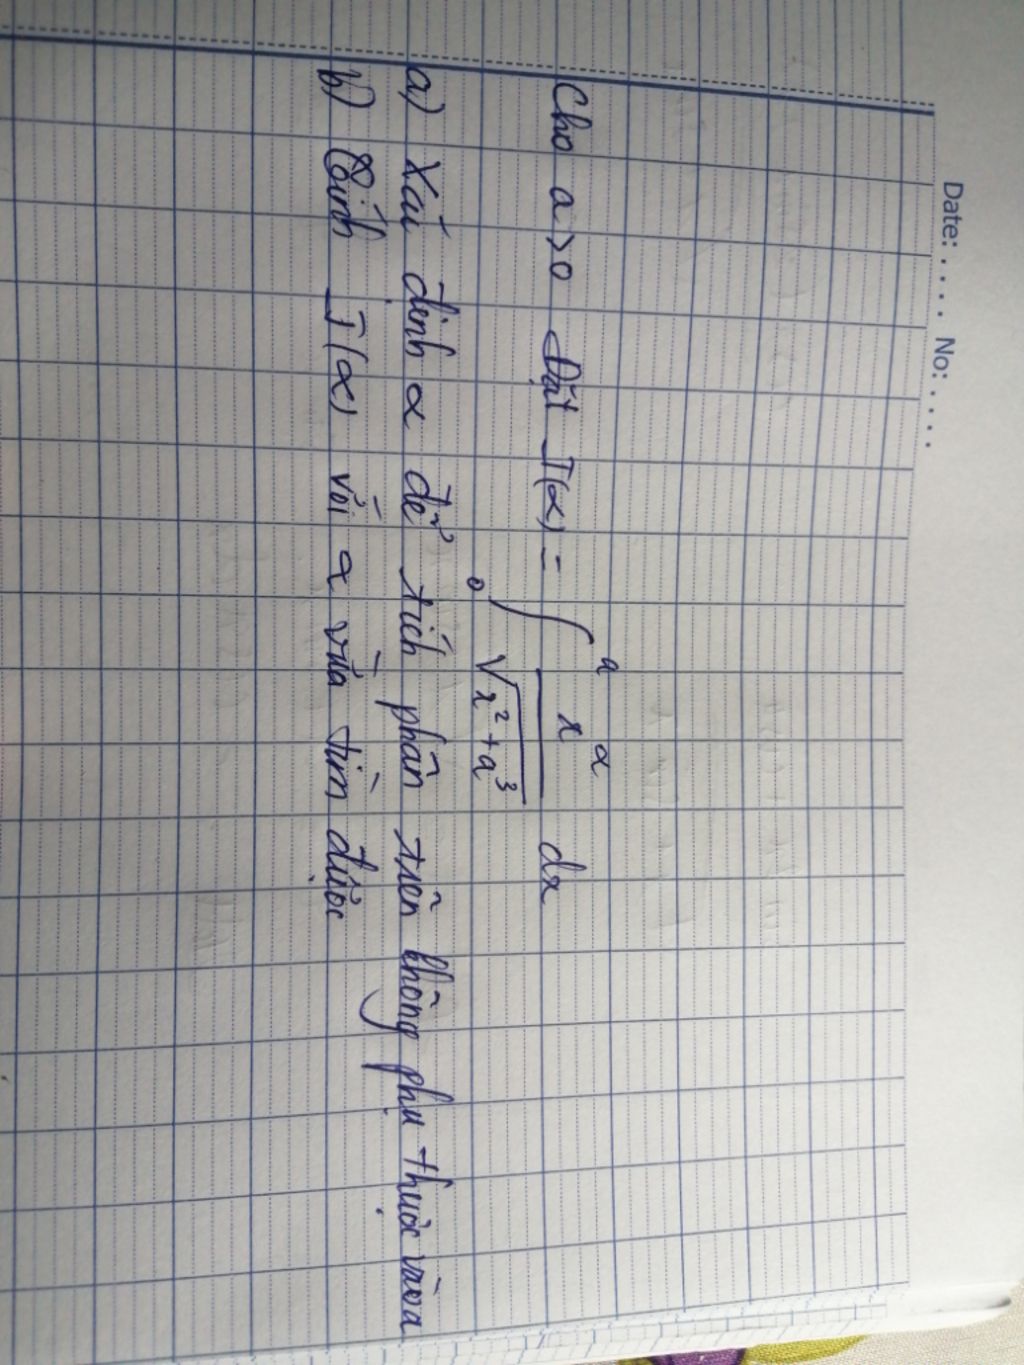 Date: ..... No: .....
Cho a>0 Đặt I(α) = ∫₀ᵃ x^α / √(x²+a³) dx
a) Xác định α để tích phân trên không phụ thuộc vào a
b) Tính I(α) với α vừa tìm được